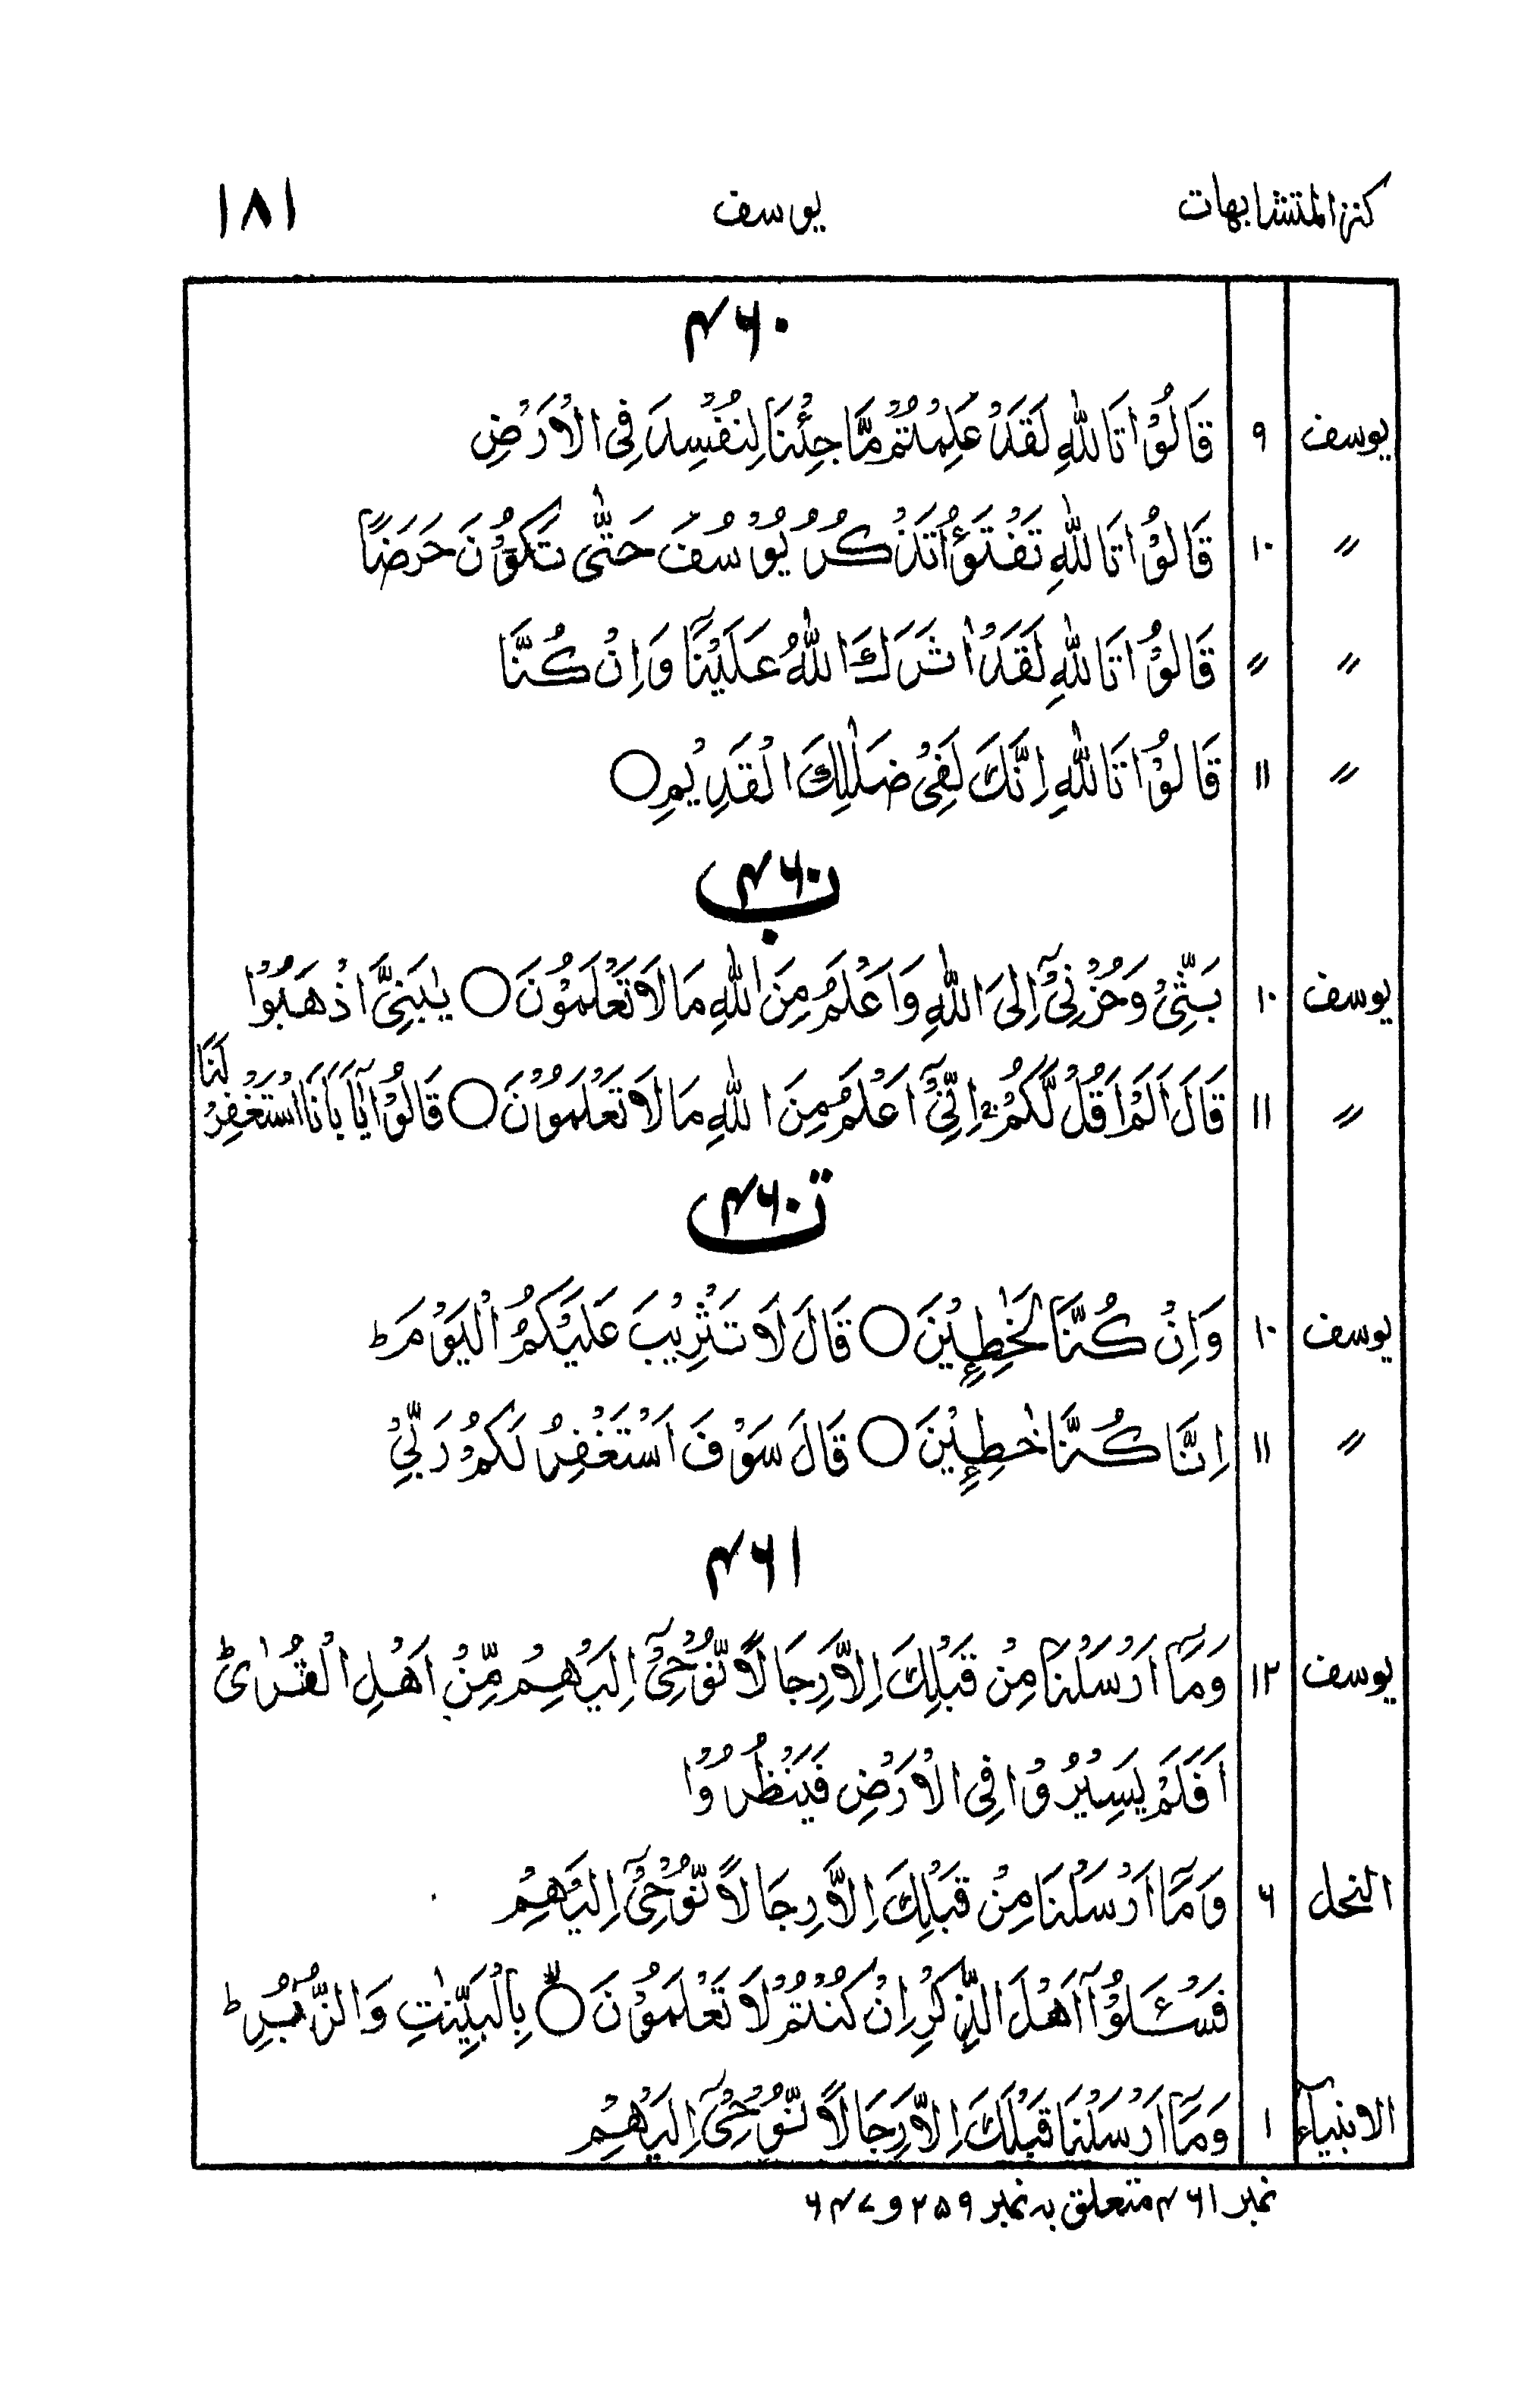 کنز المتشابہات یوسف ۱۸۱
۴۶۰
یوسف ۹ قَالُوْا تَاللّٰهِ لَقَدْ عَلِمْتُمْ مَّا جِئْنَا لِنُفْسِدَ فِی الْاَرْضِ
〃 ۱۰ قَالُوْا تَاللّٰهِ تَفْتَؤُا تَذْكُرُ یُوْسُفَ حَتّٰی تَكُوْنَ حَرَضًا
〃 〃 قَالُوْا تَاللّٰهِ لَقَدْ اٰثَرَكَ اللّٰهُ عَلَیْنَا وَاِنْ كُنَّا
〃 ۱۱ قَالُوْا تَاللّٰهِ اِنَّكَ لَفِیْ ضَلٰلِكَ الْقَدِیْمِ ○
۴۶۰ب
یوسف ۱۰ بَثِّیْ وَحُزْنِیْۤ اِلَی اللّٰهِ وَاَعْلَمُ مِنَ اللّٰهِ مَا لَا تَعْلَمُوْنَ ○ یٰبَنِیَّ اذْهَبُوْا
〃 ۱۱ قَالَ اَلَمْ اَقُلْ لَّكُمْ اِنِّیْۤ اَعْلَمُ مِنَ اللّٰهِ مَا لَا تَعْلَمُوْنَ ○ قَالُوْا یٰۤاَبَانَا اسْتَغْفِرْ لَنَا
۴۶۰ت
یوسف ۱۰ وَاِنْ كُنَّا لَخٰطِـِٕیْنَ ○ قَالَ لَا تَثْرِیْبَ عَلَیْكُمُ الْیَوْمَ ؕ
〃 ۱۱ اِنَّا كُنَّا خٰطِـِٕیْنَ ○ قَالَ سَوْفَ اَسْتَغْفِرُ لَكُمْ رَبِّیْ
۴۶۱
یوسف ۱۲ وَمَاۤ اَرْسَلْنَا مِنْ قَبْلِكَ اِلَّا رِجَالًا نُّوْحِیْۤ اِلَیْهِمْ مِّنْ اَهْلِ الْقُرٰی ؕ
اَفَلَمْ یَسِیْرُوْا فِی الْاَرْضِ فَیَنْظُرُوْا
النحل ۶ وَمَاۤ اَرْسَلْنَا مِنْ قَبْلِكَ اِلَّا رِجَالًا نُّوْحِیْۤ اِلَیْهِمْ
فَسْـَٔلُوْۤا اَهْلَ الذِّكْرِ اِنْ كُنْتُمْ لَا تَعْلَمُوْنَ ○ۙ بِالْبَیِّنٰتِ وَالزُّبُرِ ؕ
الانبیآء ۱ وَمَاۤ اَرْسَلْنَا قَبْلَكَ اِلَّا رِجَالًا نُّوْحِیْۤ اِلَیْهِمْ
نمبر ۴۶۱ متعلق بہ نمبر ۲۵۹ و ۶۴۷